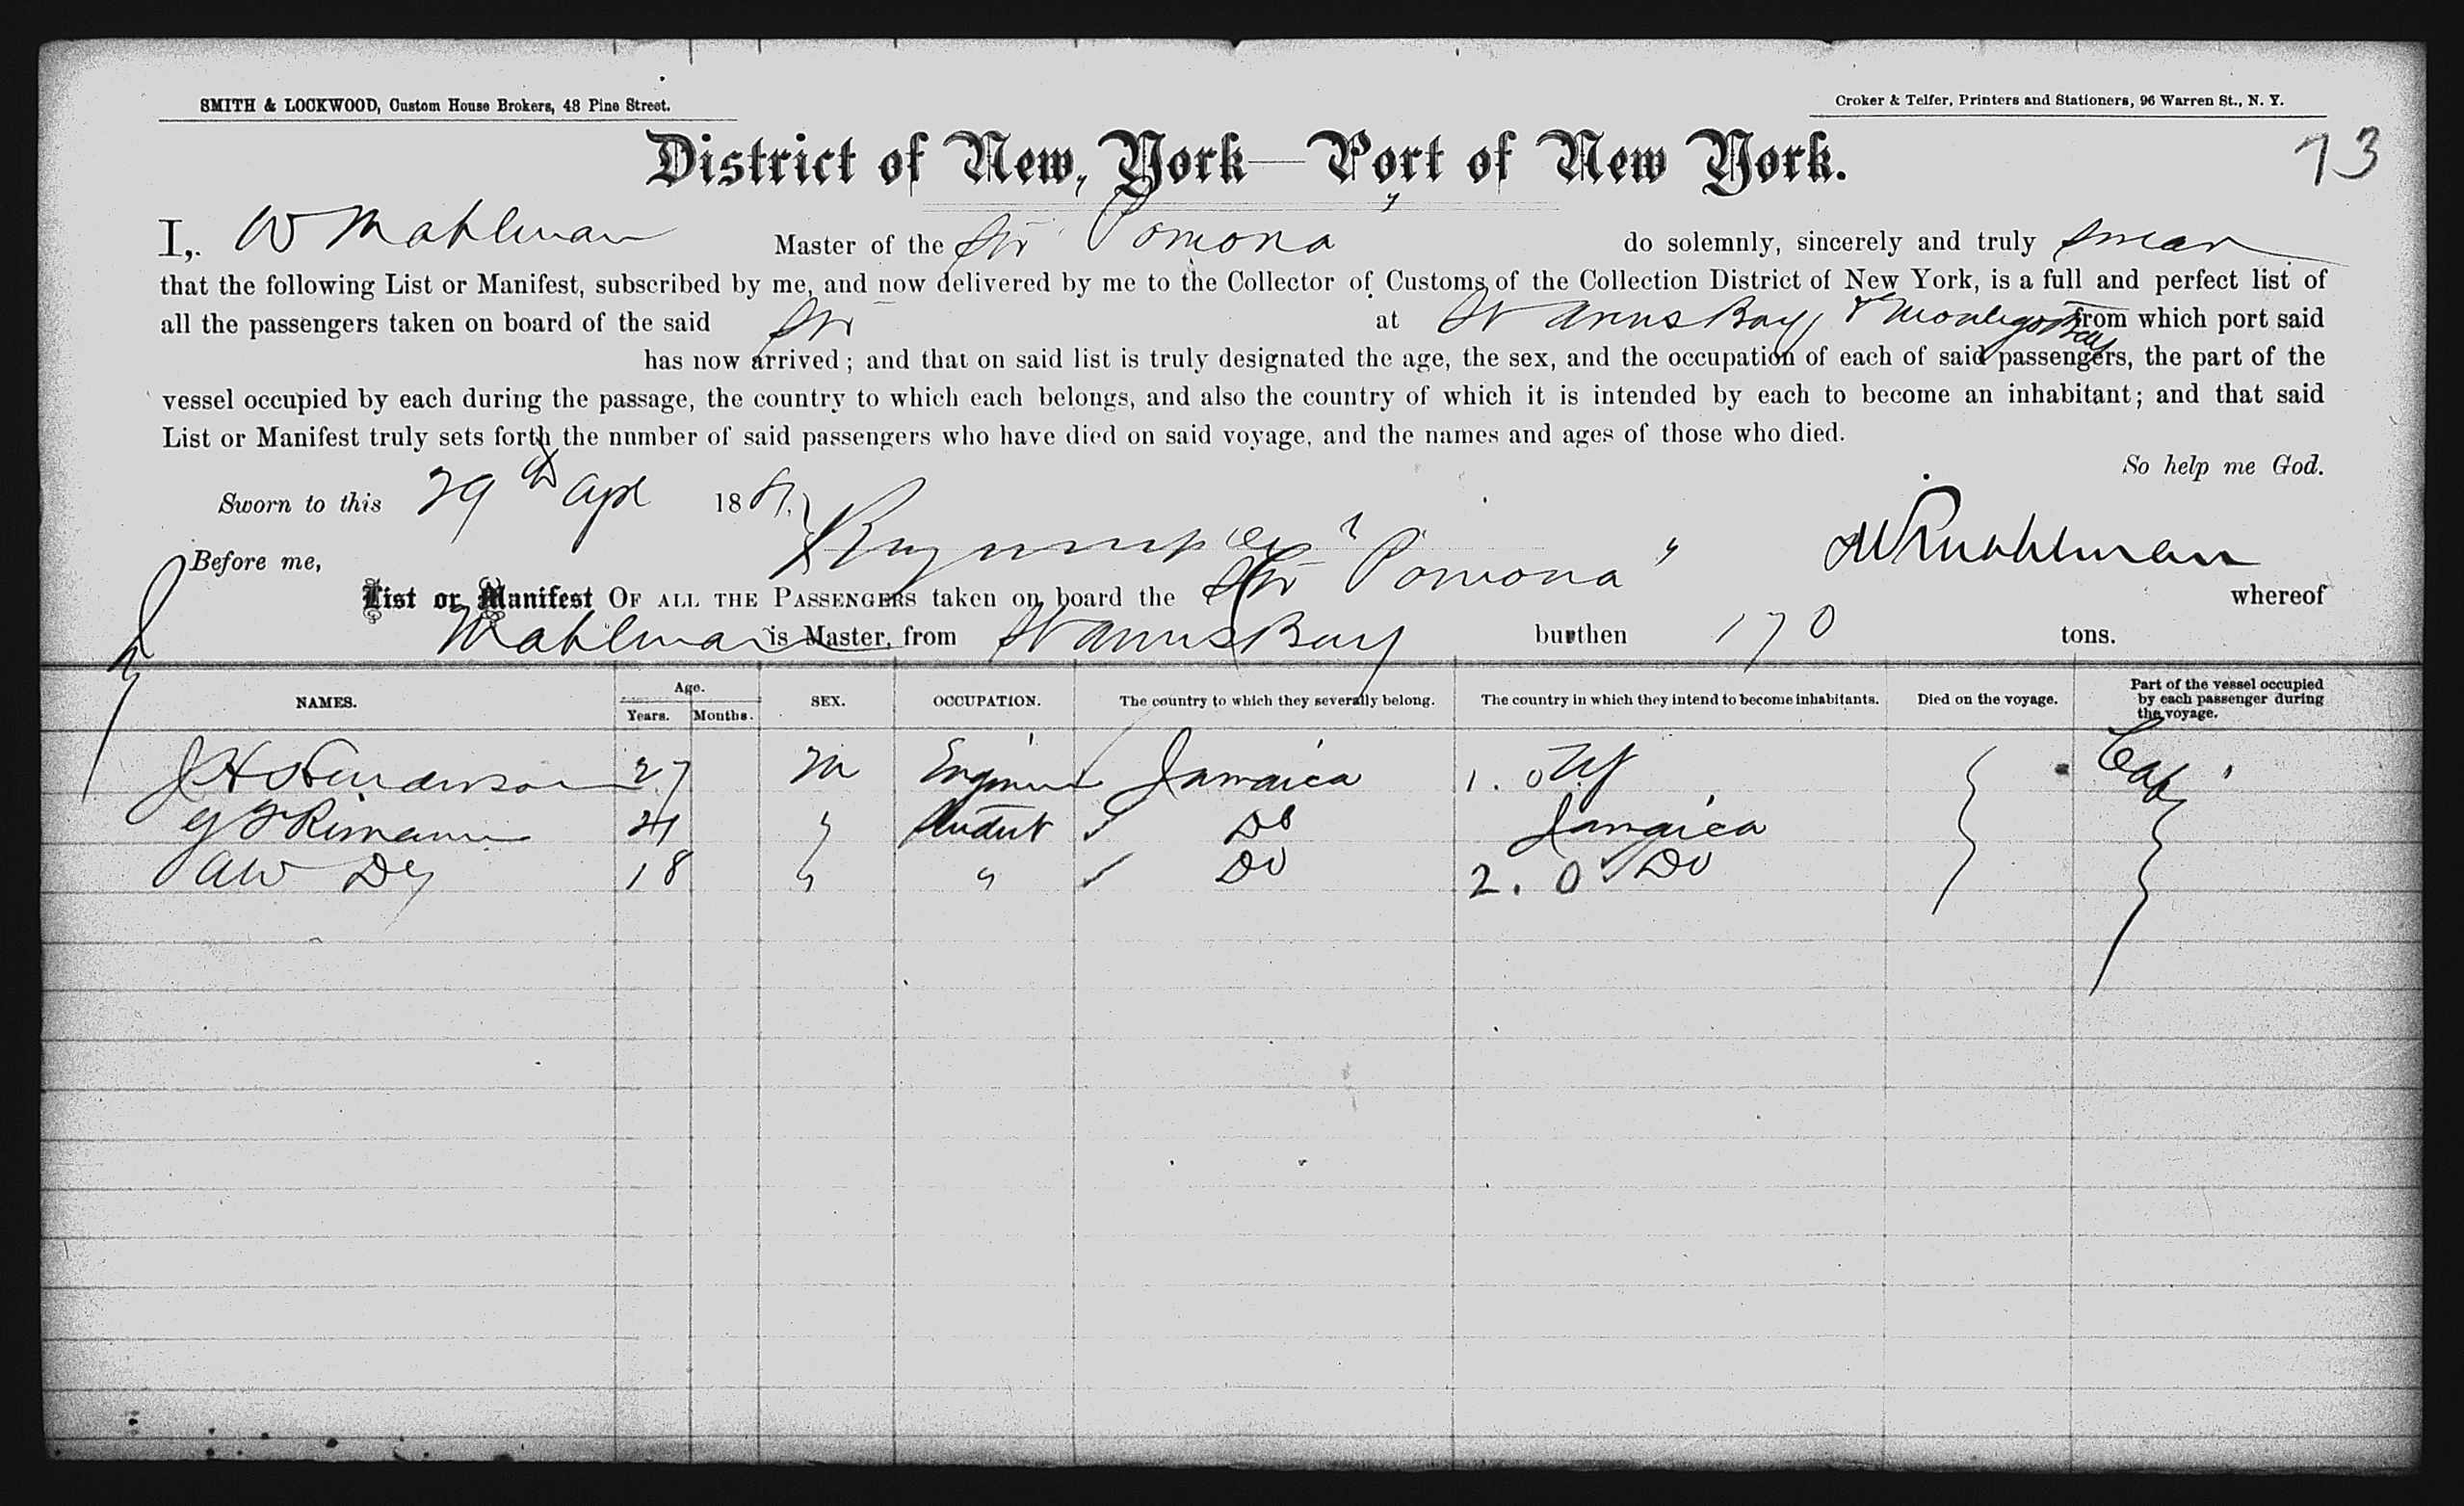 SMITH & LOCKWOOD, Custom House Brokers, 48 Pine Street.
Croker & Telfer, Printers and Stationers, 96 Warren St., N. Y.
73
District of New York—Port of New York.
I, W Mahlman Master of the Str "Pomona" do solemnly, sincerely and truly swear
that the following List or Manifest, subscribed by me, and now delivered by me to the Collector of Customs of the Collection District of New York, is a full and perfect list of
all the passengers taken on board of the said Str at St Anns Bay, & Montego Bay from which port said
has now arrived; and that on said list is truly designated the age, the sex, and the occupation of each of said passengers, the part of the
vessel occupied by each during the passage, the country to which each belongs, and also the country of which it is intended by each to become an inhabitant; and that said
List or Manifest truly sets forth the number of said passengers who have died on said voyage, and the names and ages of those who died.
So help me God.
Sworn to this 29th Apl 1887
Before me,
List or Manifest OF ALL THE PASSENGERS taken on board the Str "Pomona" whereof
Mahlman is Master, from St Anns Bay burthen 170 tons.
NAMES. Age. Years. Months. SEX. OCCUPATION. The country to which they severally belong. The country in which they intend to become inhabitants. Died on the voyage. Part of the vessel occupied by each passenger during the voyage.
J H Henderson 27 M Engineer Jamaica 1. 0 NY Cab
Rimann 21 " Student Do Jamaica
AW Dey 18 " " Do 2. 0 Do